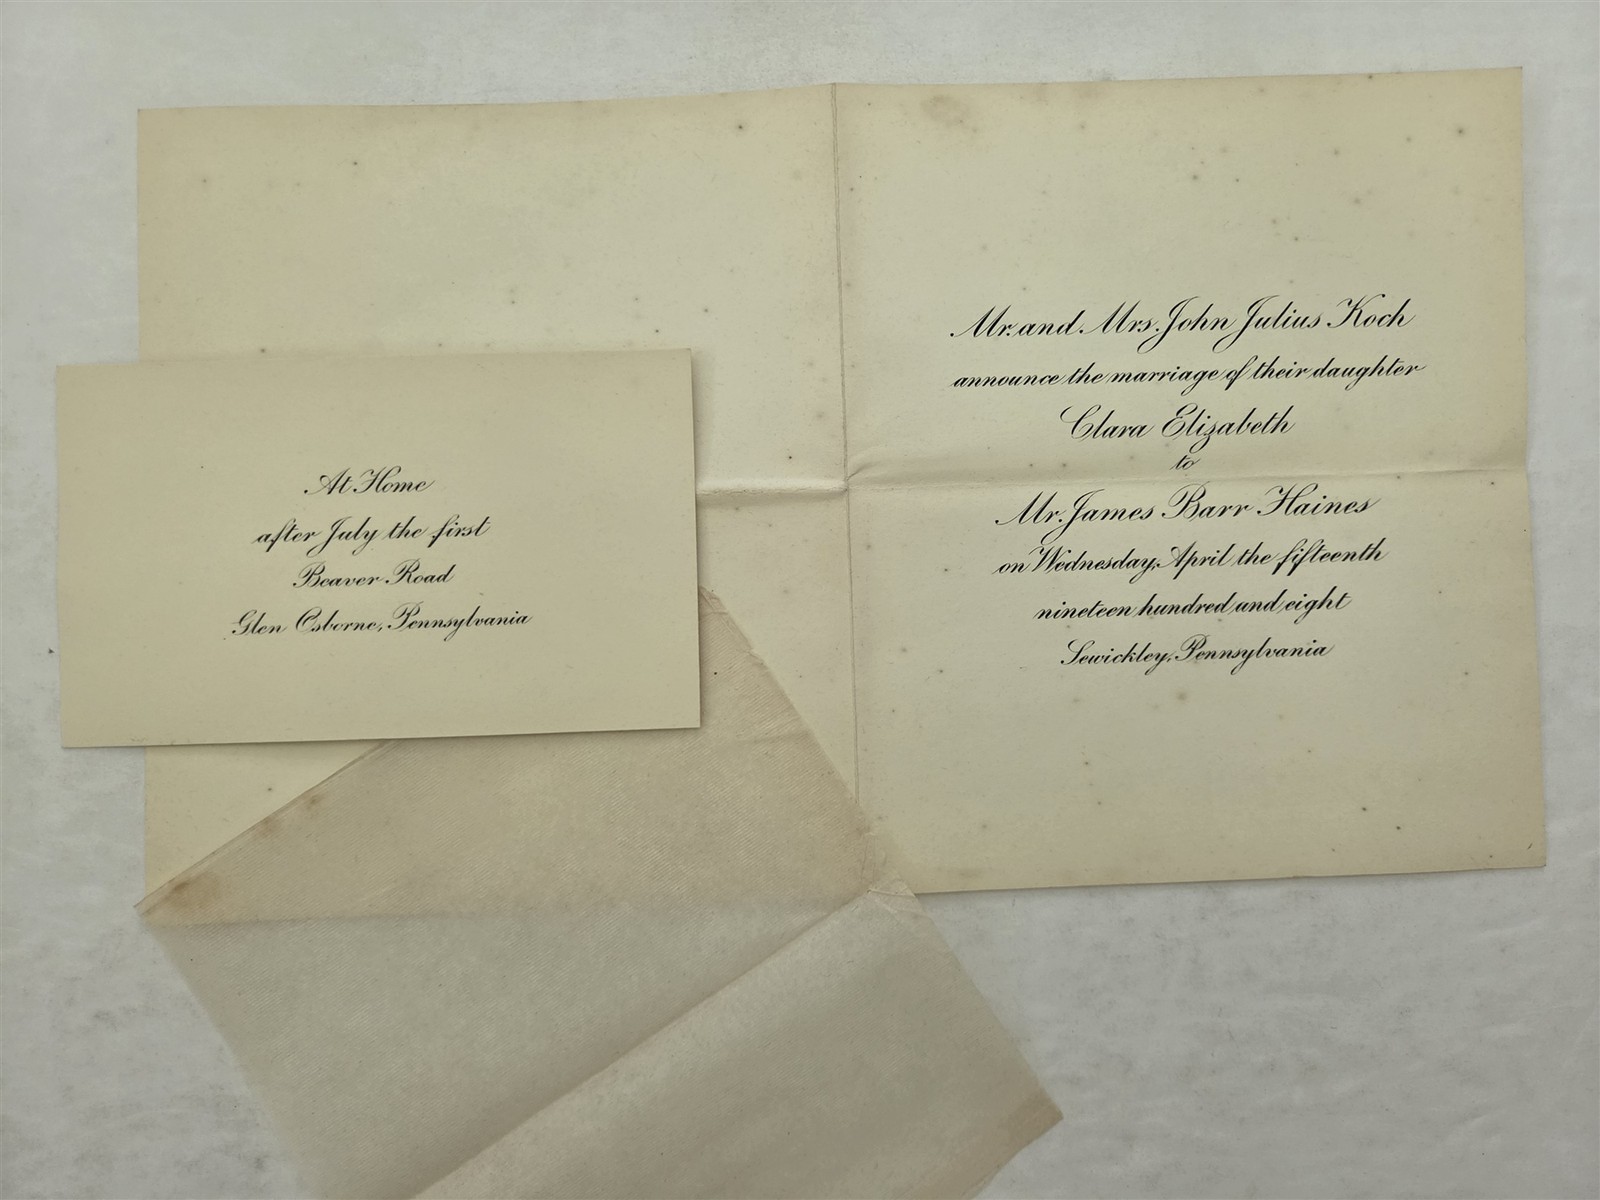 At Home
after July the first
Beaver Road
Glen Osborne, Pennsylvania
Mr. and Mrs. John Julius Koch
announce the marriage of their daughter
Clara Elizabeth
to
Mr. James Barr Haines
on Wednesday, April the fifteenth
nineteen hundred and eight
Sewickley, Pennsylvania